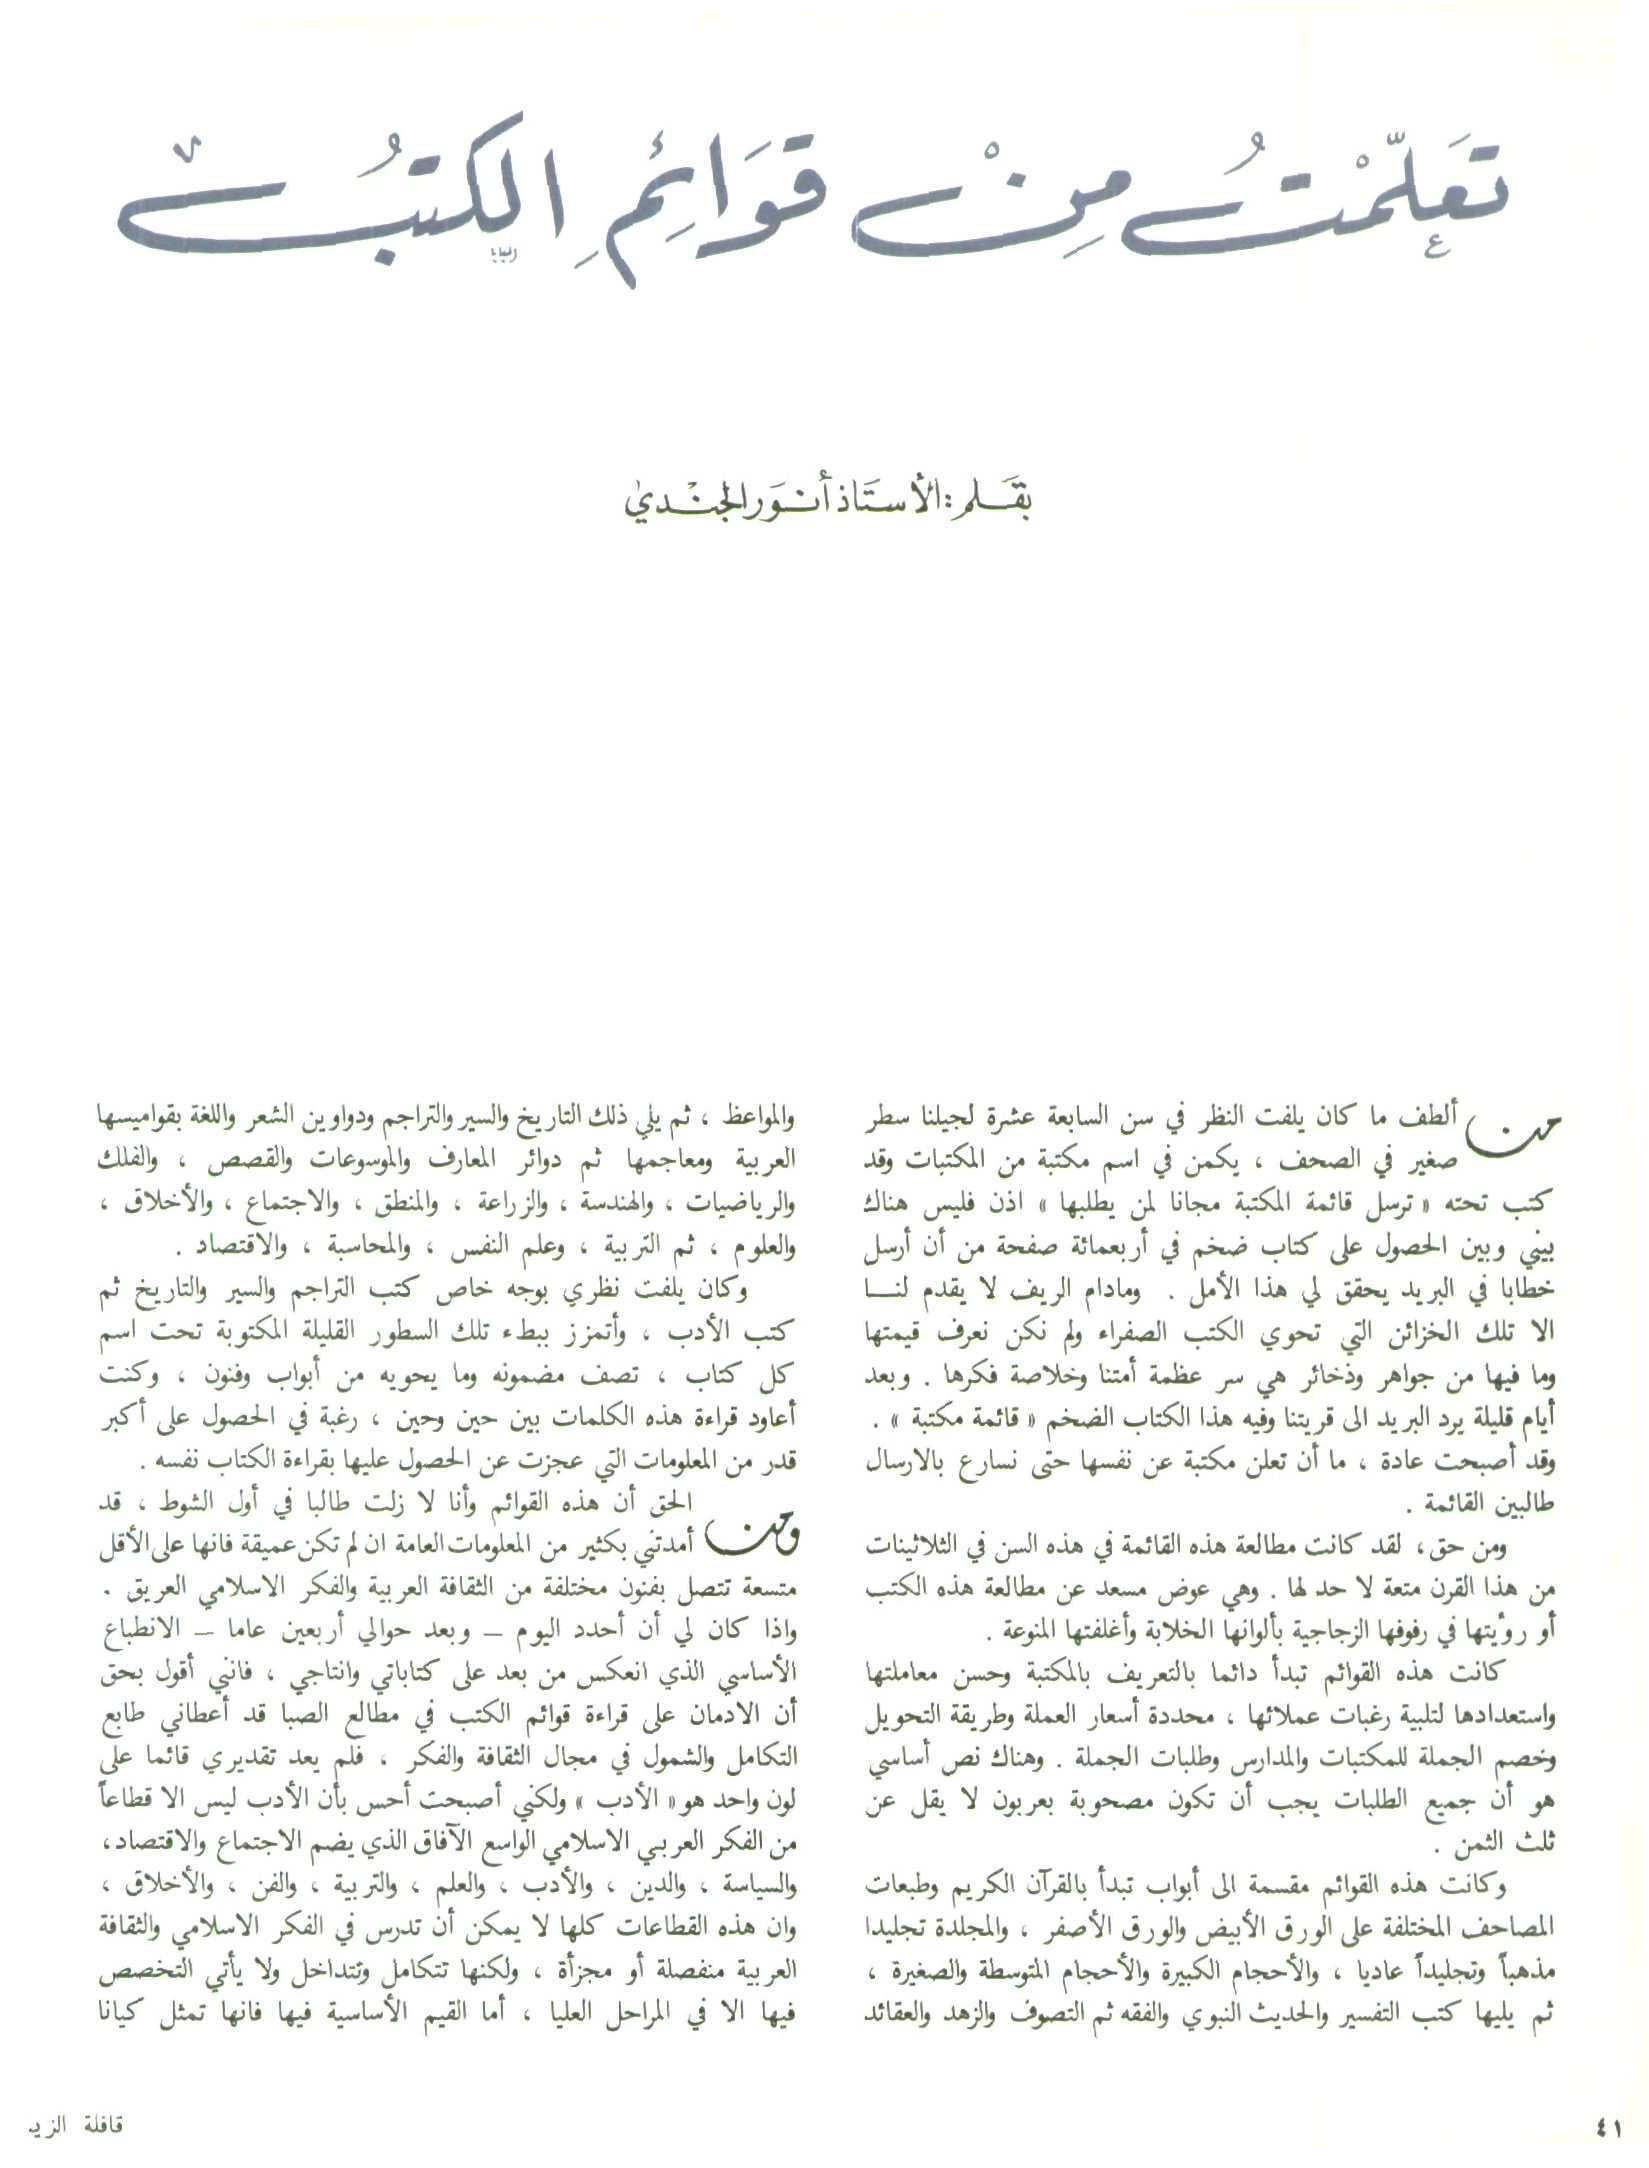 تَعَلَّمْتُ مِنْ قَوَائِمِ الكتبُ
بقَلم : الأستَاذ أنوَر الجنْدي
من ألطف ما كان يلفت النظر في سن السابعة عشرة لجيلنا سطر
صغير في الصحف ، يكمن في اسم مكتبة من المكتبات وقد
كتب تحته « ترسل قائمة المكتبة مجانا لمن يطلبها » اذن فليس هناك
بيني وبين الحصول على كتاب ضخم في أربعمائة صفحة من أن أرسل
خطابا في البريد يحقق لي هذا الأمل . ومادام الريف لا يقدم لنـــا
الا تلك الخزائن التي تحوي الكتب الصفراء ولم نكن نعرف قيمتها
وما فيها من جواهر وذخائر هي سر عظمة أمتنا وخلاصة فكرها . وبعد
أيام قليلة يرد البريد الى قريتنا وفيه هذا الكتاب الضخم « قائمة مكتبة » .
وقد أصبحت عادة ، ما أن تعلن مكتبة عن نفسها حتى نسارع بالارسال
طالبين القائمة .
ومن حق، لقد كانت مطالعة هذه القائمة في هذه السن في الثلاثينات
من هذا القرن متعة لا حد لها . وهي عوض مسعد عن مطالعة هذه الكتب
أو رؤيتها في رفوفها الزجاجية بألوانها الخلابة وأغلفتها المنوعة .
كانت هذه القوائم تبدأ دائما بالتعريف بالمكتبة وحسن معاملتها
واستعدادها لتلبية رغبات عملائها ، محددة أسعار العملة وطريقة التحويل
وخصم الجملة للمكتبات والمدارس وطلبات الجملة . وهناك نص أساسي
هو أن جميع الطلبات يجب أن تكون مصحوبة بعربون لا يقل عن
ثلث الثمن .
وكانت هذه القوائم مقسمة الى أبواب تبدأ بالقرآن الكريم وطبعات
المصاحف المختلفة على الورق الأبيض والورق الأصفر ، والمجلدة تجليدا
مذهباً وتجليداً عاديا ، والأحجام الكبيرة والأحجام المتوسطة والصغيرة ،
ثم يليها كتب التفسير والحديث النبوي والفقه ثم التصوف والزهد والعقائد
والمواعظ ، ثم يلي ذلك التاريخ والسير والتراجم ودواوين الشعر واللغة بقواميسها
العربية ومعاجمها ثم دوائر المعارف والموسوعات والقصص ، والفلك
والرياضيات ، والهندسة ، والزراعة ، والمنطق ، والاجتماع ، والأخلاق ،
والعلوم ، ثم التربية ، وعلم النفس ، والمحاسبة ، والاقتصاد .
وكان يلفت نظري بوجه خاص كتب التراجم والسير والتاريخ ثم
كتب الأدب ، وأتمزز ببطء تلك السطور القليلة المكتوبة تحت اسم
كل كتاب ، تصف مضمونه وما يحويه من أبواب وفنون ، وكنت
أعاود قراءة هذه الكلمات بين حين وحين ، رغبة في الحصول على أكبر
قدر من المعلومات التي عجزت عن الحصول عليها بقراءة الكتاب نفسه .
ومن الحق أن هذه القوائم وأنا لا زلت طالبا في أول الشوط ، قد
أمدتني بكثير من المعلومات العامة ان لم تكن عميقة فانها على الأقل
متسعة تتصل بفنون مختلفة من الثقافة العربية والفكر الاسلامي العريق .
واذا كان لي أن أحدد اليوم – وبعد حوالي أربعين عاما – الانطباع
الأساسي الذي انعكس من بعد على كتاباتي وانتاجي ، فانني أقول بحق
أن الادمان على قراءة قوائم الكتب في مطالع الصبا قد أعطاني طابع
التكامل والشمول في مجال الثقافة والفكر ، فلم يعد تقديري قائما على
لون واحد هو « الأدب » ولكني أصبحت أحس بأن الأدب ليس الا قطاعاً
من الفكر العربي الاسلامي الواسع الآفاق الذي يضم الاجتماع والاقتصاد،
والسياسة ، والدين ، والأدب ، والعلم ، والتربية ، والفن ، والأخلاق ،
وان هذه القطاعات كلها لا يمكن أن تدرس في الفكر الاسلامي والثقافة
العربية منفصلة أو مجزأة ، ولكنها تتكامل وتتداخل ولا يأتي التخصص
فيها الا في المراحل العليا ، أما القيم الأساسية فيها فانها تمثل كيانا
٤١
قافلة الزي